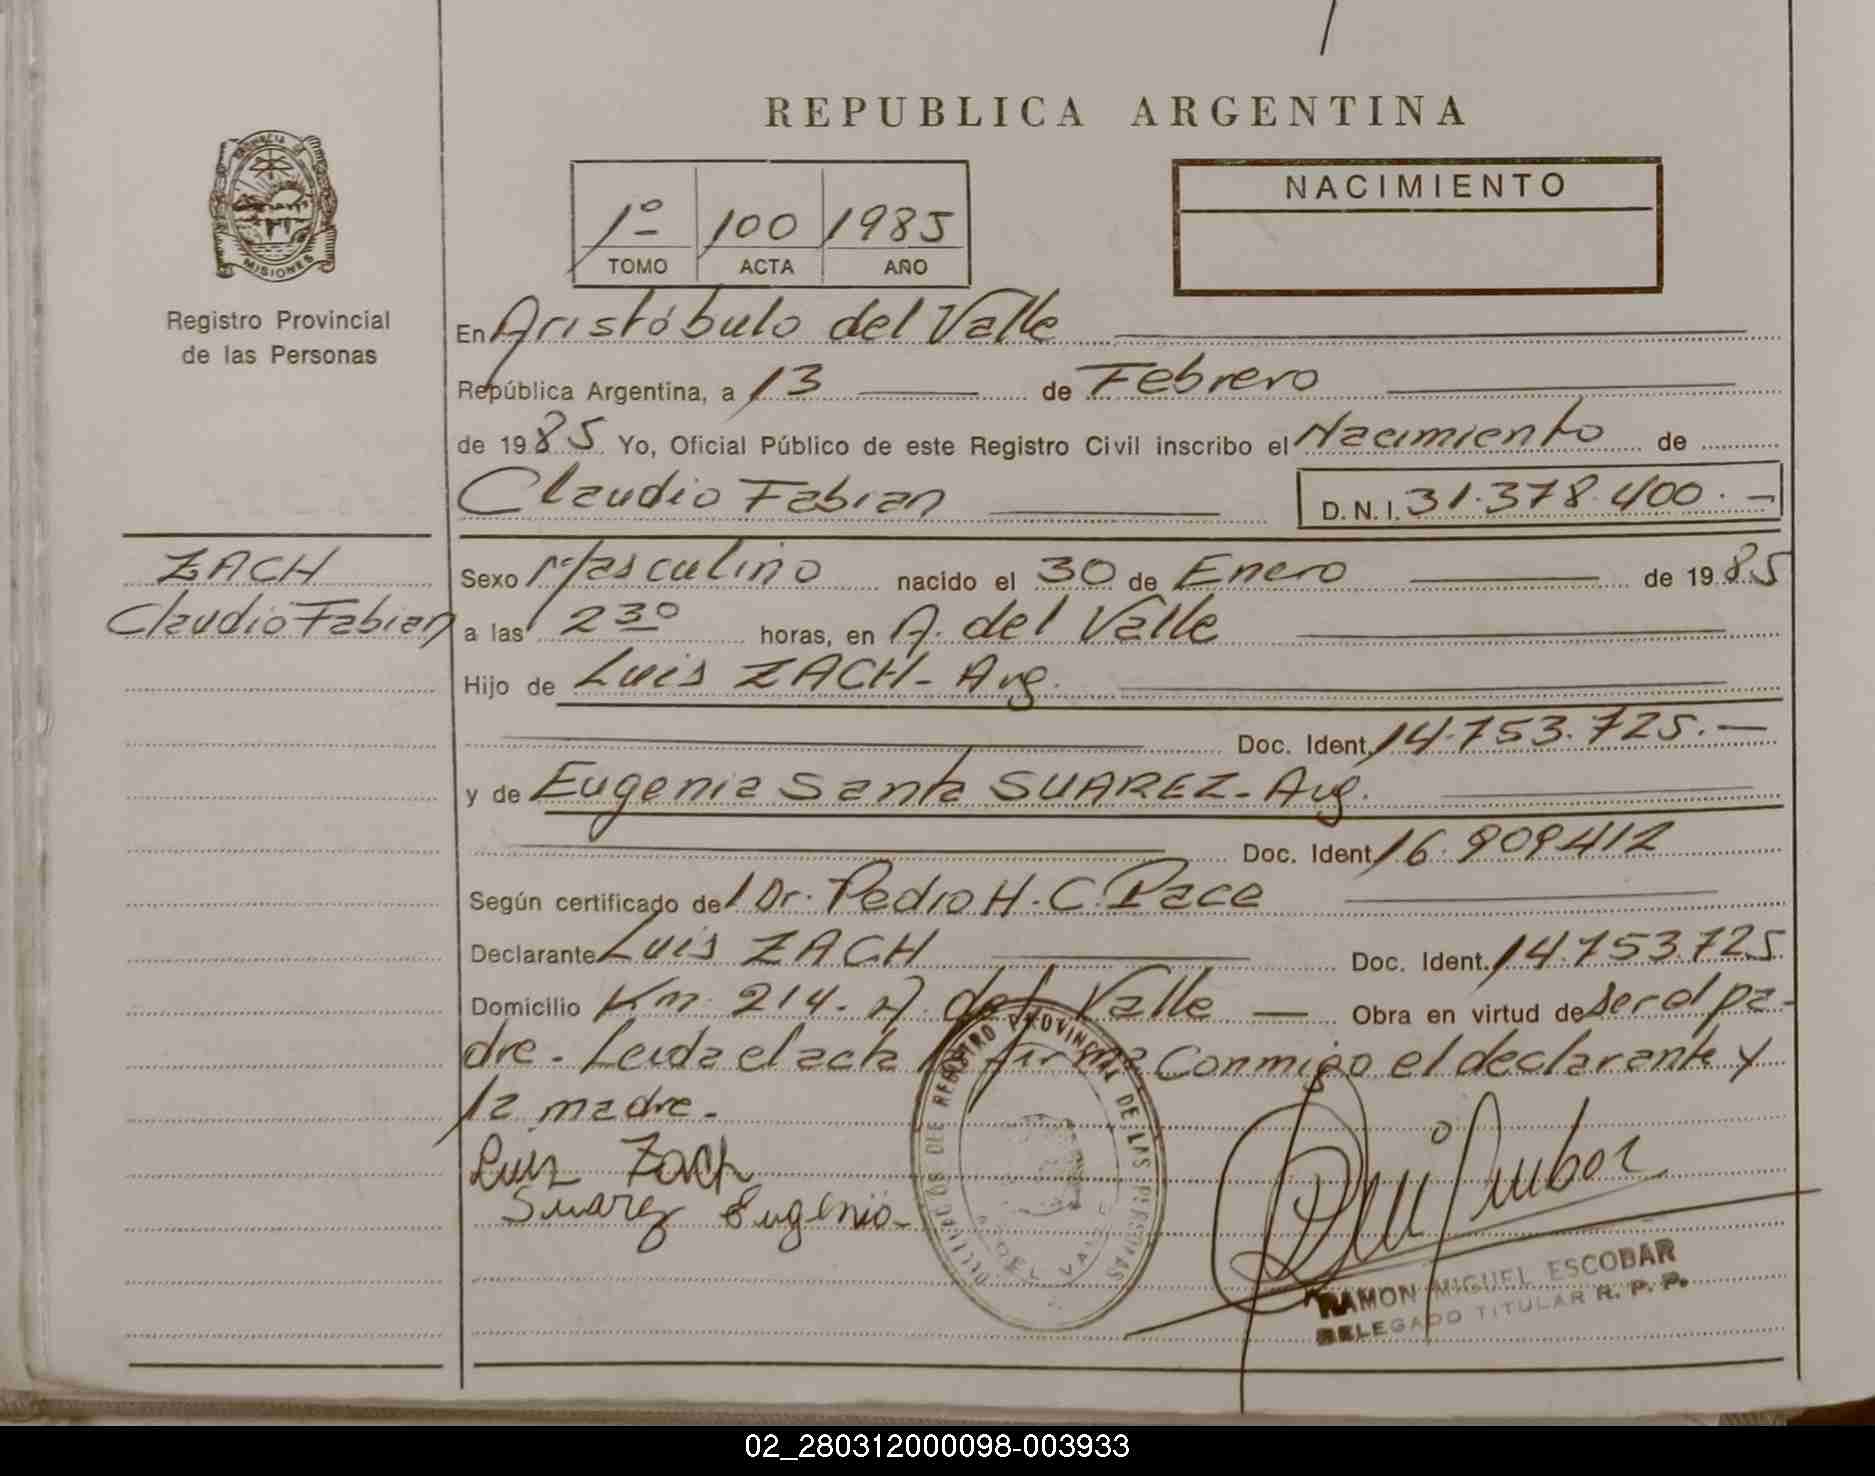 REPUBLICA ARGENTINA
PROVINCIA D
MISIONES
Registro Provincial
de las Personas
1º 100 1985
TOMO ACTA AÑO
NACIMIENTO
En Aristóbulo del Valle
República Argentina, a 13 de Febrero
de 1985 Yo, Oficial Público de este Registro Civil inscribo el Nacimiento de
Claudio Fabian D.N.I. 31.378.400.-
ZACH
Claudio Fabian
Sexo Masculino nacido el 30 de Enero de 1985
a las 2 30 horas, en A. del Valle
Hijo de Luis ZACH - Arg.
Doc. Ident. 14.753.725.-
y de Eugenia Santa SUAREZ - Arg.
Doc. Ident. 16.909412
Según certificado del Dr. Pedro H. C. Pace
Declarante Luis ZACH Doc. Ident. 14.753.725
Domicilio Km. 214 - A. del Valle - Obra en virtud de ser el pa-
dre - Leida el acta la firma conmigo el declarante y
la madre -
Luis Zach
Suarez Eugenia
REGISTRO PROVINCIAL DE LAS PERSONAS
RAMON MIGUEL ESCOBAR
DELEGADO TITULAR R. P. P.
02_280312000098-003933